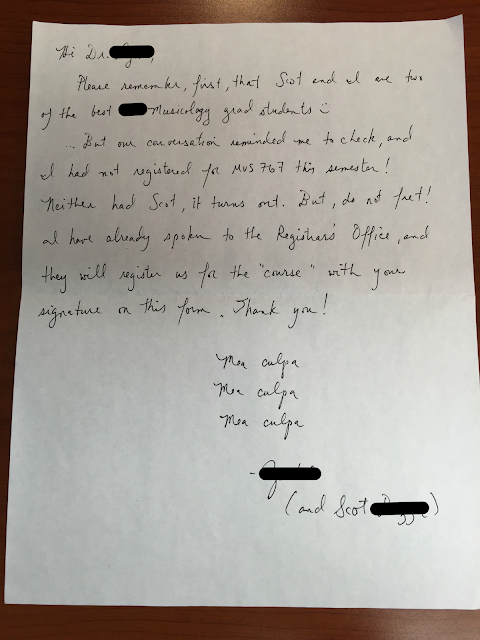 Hi Dr.
Please remember, first, that Scot and I are two
of the best Musicology grad students
... But our conversation reminded me to check, and
I had not registered for MUS 767 this semester!
Neither had Scot, it turns out. But, do not fret!
I have already spoken to the Registrar's Office, and
they will register us for the "course" with your
signature on this form. Thank you!
Mea culpa
Mea culpa
Mea culpa
-
(and Scot )